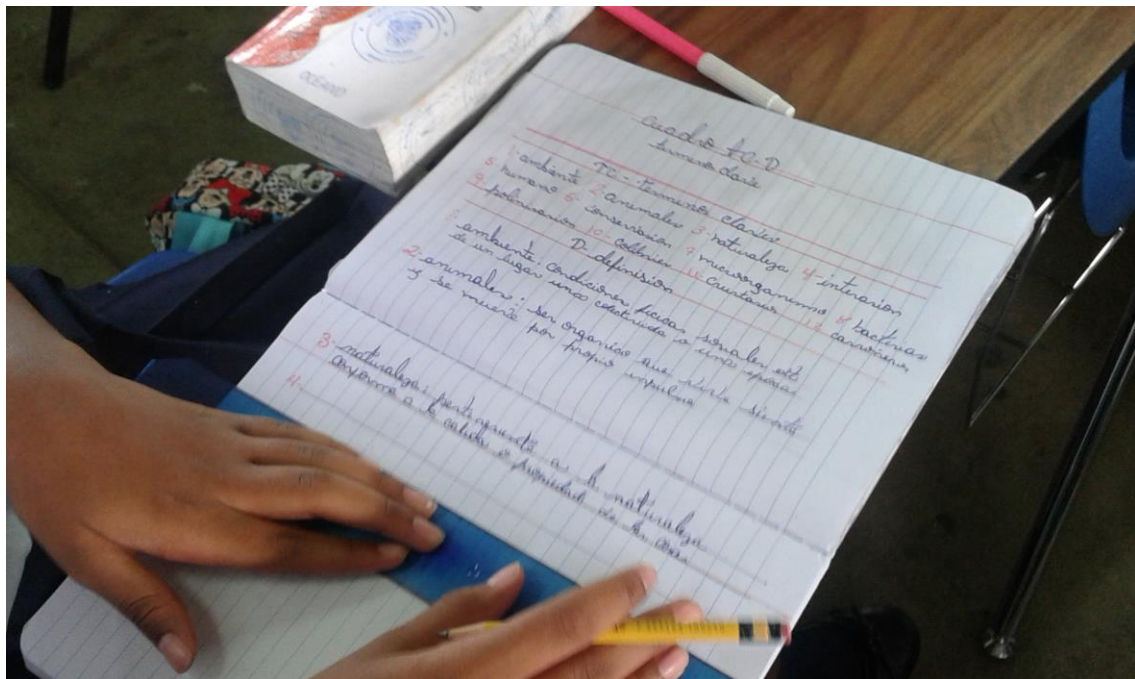 OCEANO
Cuadro T.C-D
terminos clave
TC - terminos claves
1- ambiente 2- animales 3- naturaleza 4- interasion
5- humano 6- conservasion 7- microorganismo 8- bacterias
9- polinisasion 10- colibries 11- Crustasios 12- carroñeros
D- definision
1- ambiente: condiciones ficicas sosiales etc
de un lugar una colectividad o una eposas
2- animales: ser organico que vive siente
y se mueve por propio impulso
3- naturaleza: perteneciente a la naturaleza
conforme a la calidad o propiedad de las cosas
4-